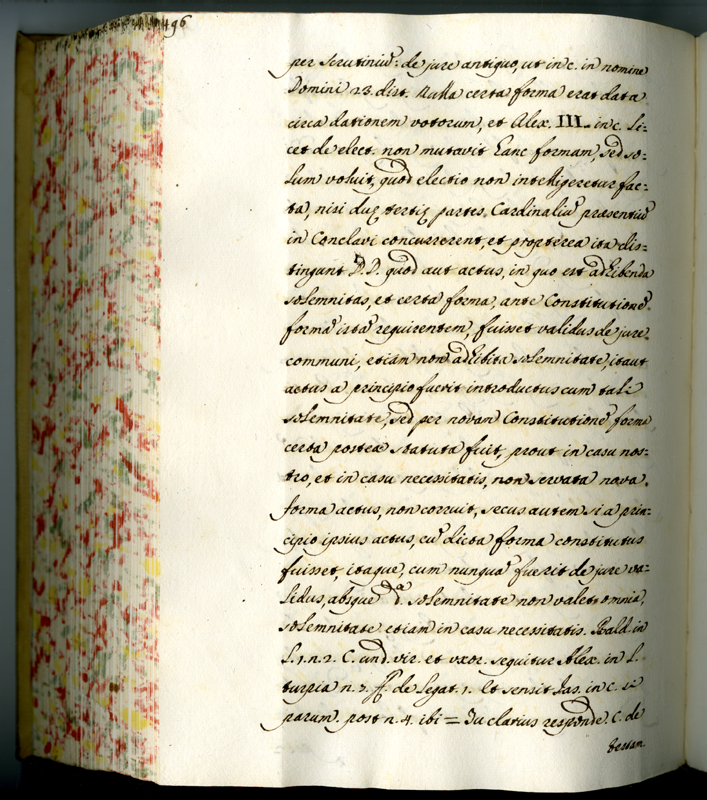 496
per scrutiniũ: de jure antiquo, ut in c. in nomine
Domini 23. dist. Nulla certa forma erat data
circa dationem votorum, et Alex. III. in c. li:
cet de elect. non mutavit hanc formam, sed so:
lum voluit, quod electio non intelligeretur fac:
ta, nisi duę tertię partes Cardinaliũ præsentiũ
in Conclavi concurrerent, et propterea ita dis:
tingunt D.D. quod aut actus, in quo est adhibenda
solemnitas, et certa forma, ante Constitutionẽ
formã istã requirentem, fuisset validus de jure
communi, etiam non adhibita solemnitate, itaut
actus a principio fuerit introductus cum tali
solemnitate, sed per novam Constitutionẽ forma
certa postea statuta fuit, prout in casu nos:
tro, et in casu necessitatis, non servata nova
forma actus, non corruit, secus autem si a prin:
cipio ipsius actus, cũ dicta forma constitutus
fuisset, itaque, cum nunquã fuerit de jure va:
lidus, absque dã. solemnitate non valet omnia,
solemnitate etiam in casu necessitatis. Bald. in
L. 1. n. 2. C. und. vir. et uxor. sequitur Alex. in L.
turpia n. 7. ff. de Legat. 1. et sensit Jas. in c. si
parum. post n. 4. ibi = Tu clarius responde. C. de
testam.